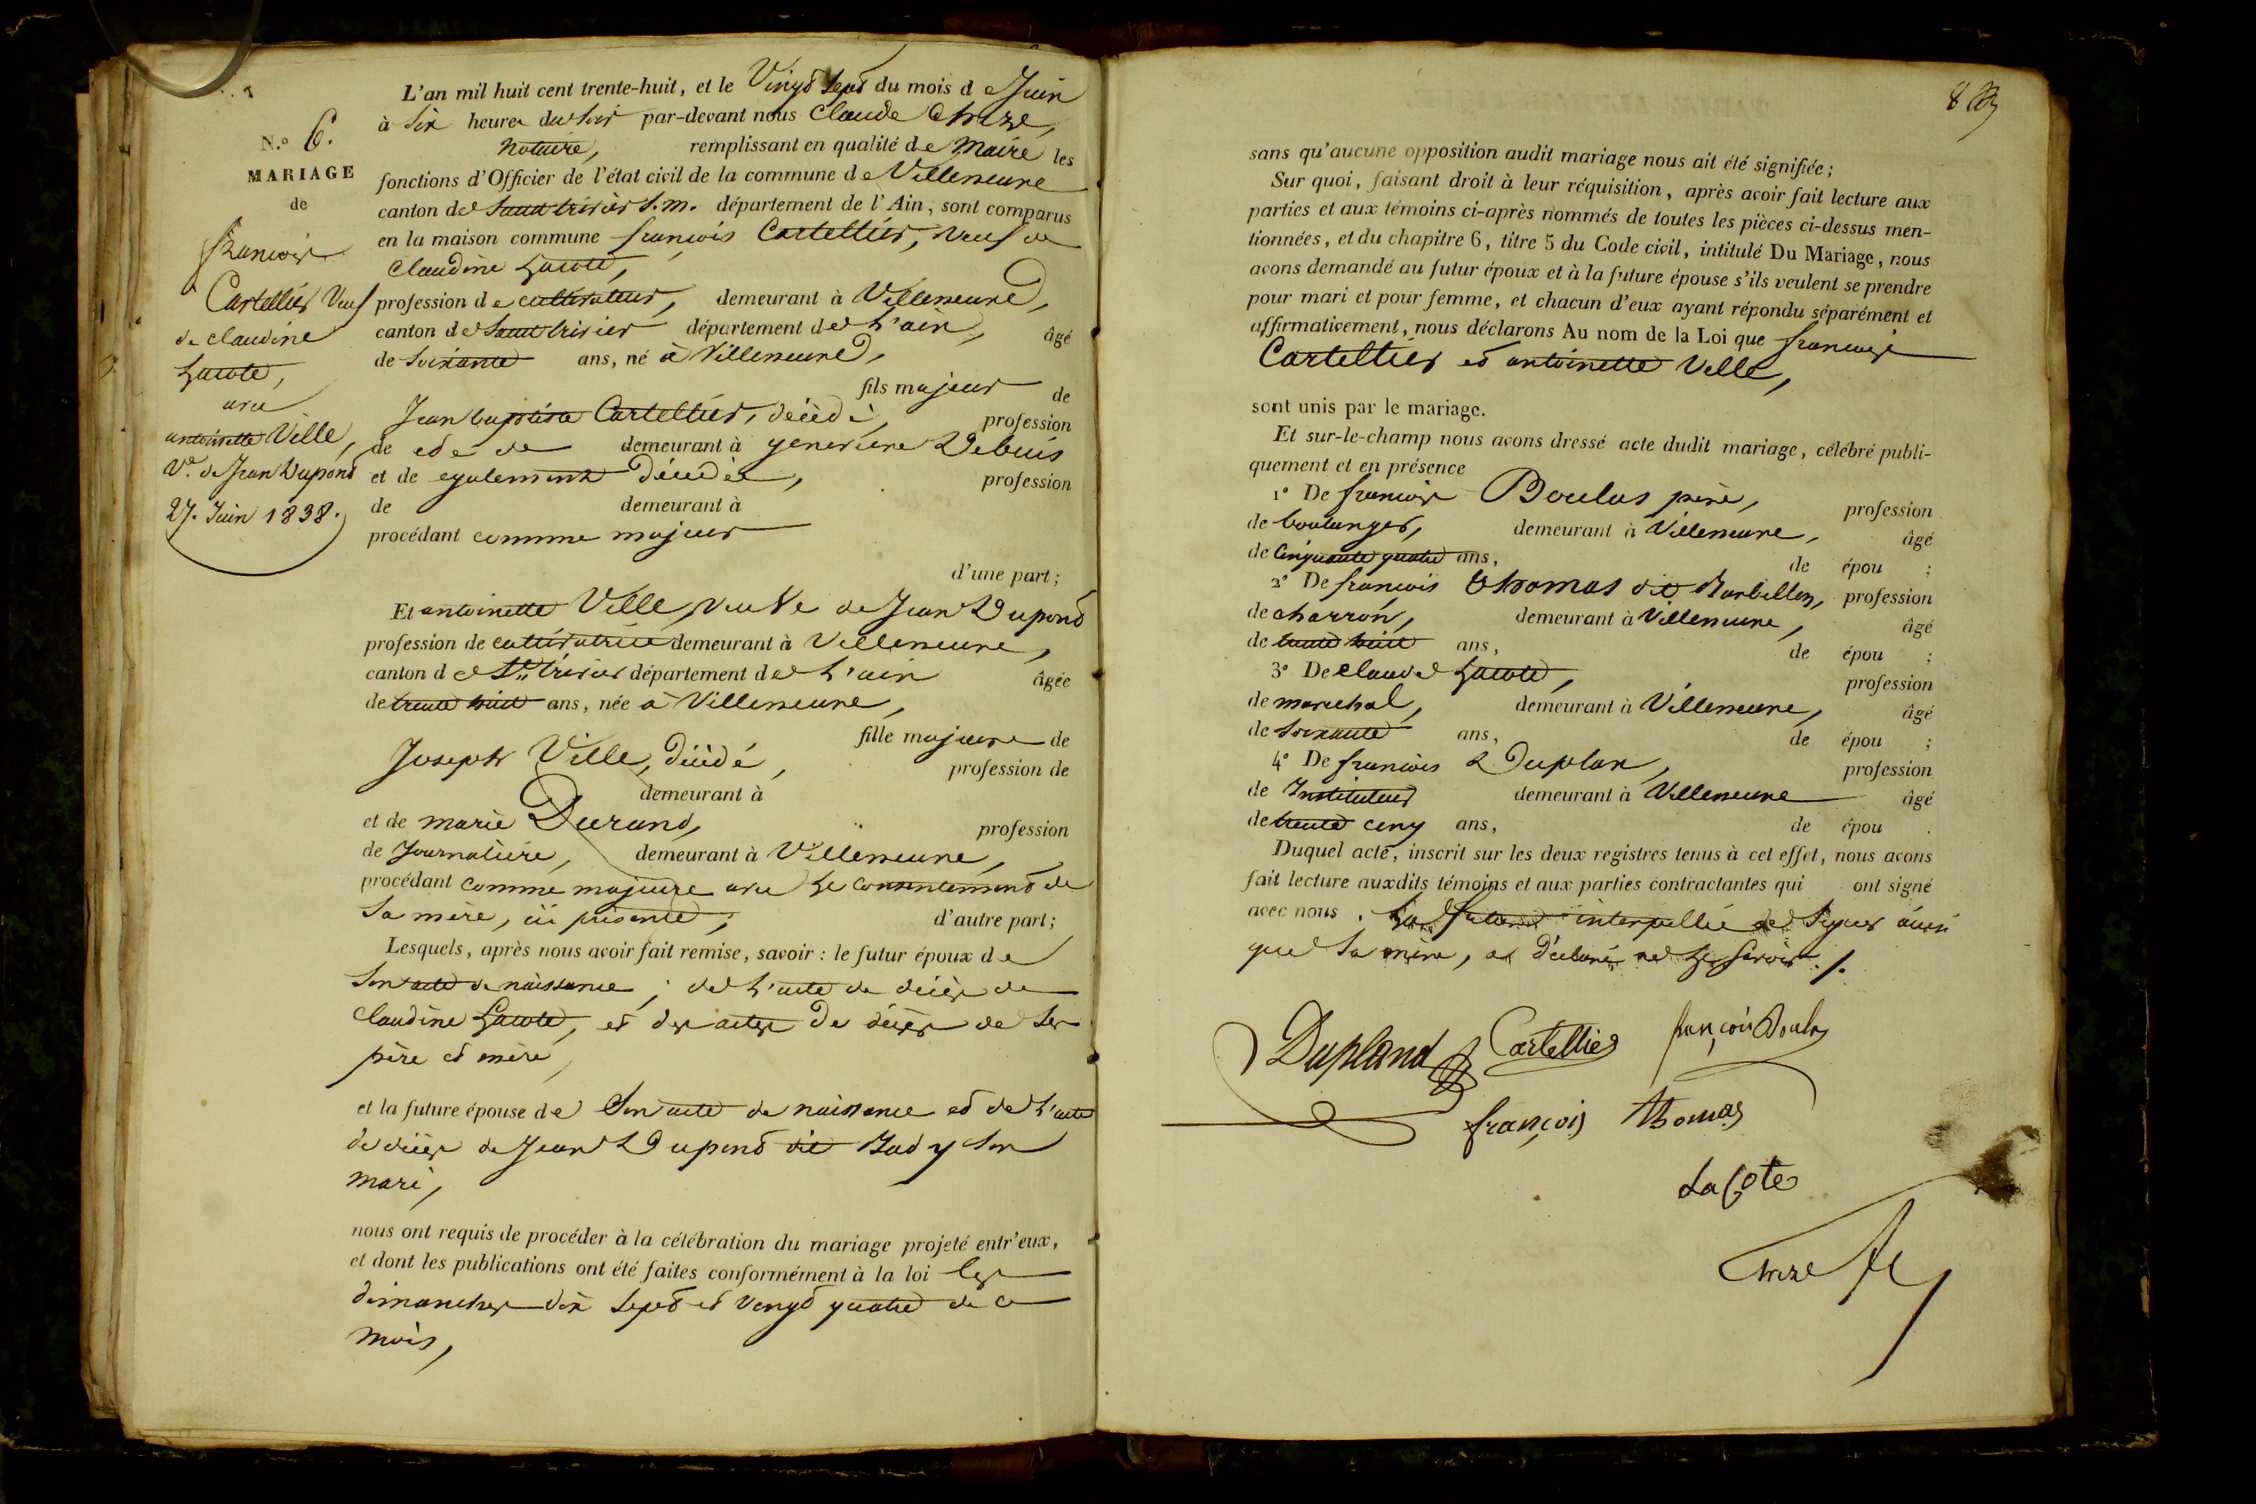 N.º 6.
MARIAGE
de
françois
Cartellier Veuf
de claudine
Lacote,
avec
antoinette Ville,
Vᵉ. de Jean Dupond
27. Juin 1838.
L'an mil huit cent trente-huit, et le Vingt Sept du mois de Juin
à Six heures du Soir par-devant nous Claude
notaire, remplissant en qualité de Maire les
fonctions d'Officier de l'état civil de la commune de Villeneuve
canton de Saint trivier S.m. département de l'Ain, sont comparus
en la maison commune françois Cartellier, veuf de
Claudine Lacote,
profession de cultivateur, demeurant à Villeneuve,
canton de Saint trivier département de L'ain, âgé
de Soixante ans, né à Villeneuve,
fils majeur de
Jean baptiste Cartellier, décédé, profession
de et de demeurant à genevieve Debuis
et de egalement décédée, profession
de demeurant à
procédant comme majeur
d'une part;
Et antoinette Ville, veuve de Jean Dupond
profession de cultivatrice demeurant à Villeneuve,
canton de St trivier département de L'ain âgée
de trente huit ans, née à Villeneuve,
fille majeure de
Joseph Ville, décédé, profession de
demeurant à
et de marie Durand, profession
de Journalière, demeurant à Villeneuve,
procédant comme majeure avec Le consentement de
Sa mère, ici présente, d'autre part;
Lesquels, après nous avoir fait remise, savoir: le futur époux de
Son acte de naissance; de L'acte de décès de
Claudine Lacote, et des actes de décès de Ses
père et mère,
et la future épouse de Son acte de naissance et de L'acte
de décès de Jean Dupond dit Son
mari,
nous ont requis de procéder à la célébration du mariage projeté entr'eux,
et dont les publications ont été faites conformément à la loi les
dimanches dix Sept et Vingt quatre de ce
mois,
8
sans qu'aucune opposition audit mariage nous ait été signifiée;
Sur quoi, faisant droit à leur réquisition, après avoir fait lecture aux
parties et aux témoins ci-après nommés de toutes les pièces ci-dessus men-
tionnées, et du chapitre 6, titre 5 du Code civil, intitulé Du Mariage, nous
avons demandé au futur époux et à la future épouse s'ils veulent se prendre
pour mari et pour femme, et chacun d'eux ayant répondu séparément et
affirmativement, nous déclarons Au nom de la Loi que françois
Cartellier et antoinette Ville,
sont unis par le mariage.
Et sur-le-champ nous avons dressé acte dudit mariage, célébré publi-
quement et en présence
1º De françois Boulas père, profession
de boulanger, demeurant à Villeneuve, âgé
de Cinquante quatre ans, de épou ;
2º De françois Thomas dit Barbillon, profession
de charron, demeurant à Villeneuve, âgé
de trente huit ans, de épou ;
3º De Claude Lacote, profession
de marechal, demeurant à Villeneuve, âgé
de Soixante ans, de épou ;
4º De françois Duplan, profession
de Instituteur demeurant à Villeneuve âgé
de trente cinq ans, de épou .
Duquel acte, inscrit sur les deux registres tenus à cet effet, nous avons
fait lecture auxdits témoins et aux parties contractantes qui ont signé
avec nous. La future interpellée de Signer ainsi
que Sa mère, a déclaré ne Le Savoir ./.
Dupland Cartellier françois Boulas
françois thomas
LaCote